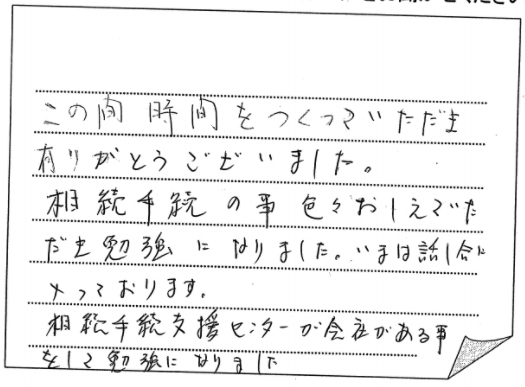 この間時間をつくっていただき
有りがとうございました。
相続手続の事色々おしえていた
だき勉強になりました。いまは話し合に
入っております。
相続手続支援センターが会社がある事
をして勉強になりました